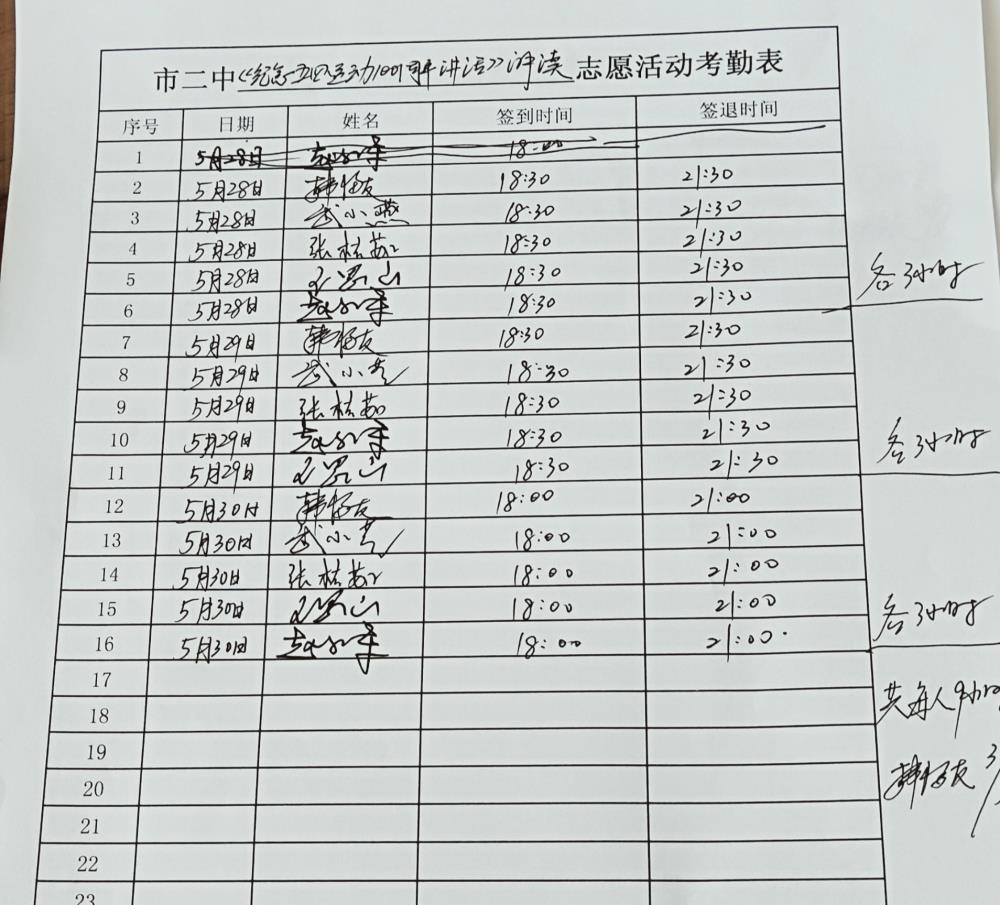 市二中《纪念五四运动100周年讲话》诵读志愿活动考勤表
序号 日期 姓名 签到时间 签退时间
1 5月28日 18:00
2 5月28日 韩好友 18:30 21:30
3 5月28日 武小燕 18:30 21:30
4 5月28日 张桂茹 18:30 21:30
5 5月28日 18:30 21:30
各3小时
6 5月28日 18:30 21:30
7 5月29日 韩好友 18:30 21:30
8 5月29日 武小 18:30 21:30
9 5月29日 张桂茹 18:30 21:30
10 5月29日 18:30 21:30
各3小时
11 5月29日 18:30 21:30
12 5月30日 韩好友 18:00 21:00
13 5月30日 武小 18:00 21:00
14 5月30日 张桂茹 18:00 21:00
15 5月30日 18:00 21:00
各3小时
16 5月30日 18:00 21:00
17
18
共每人9小时
19
20
韩好友 3
21
22
23